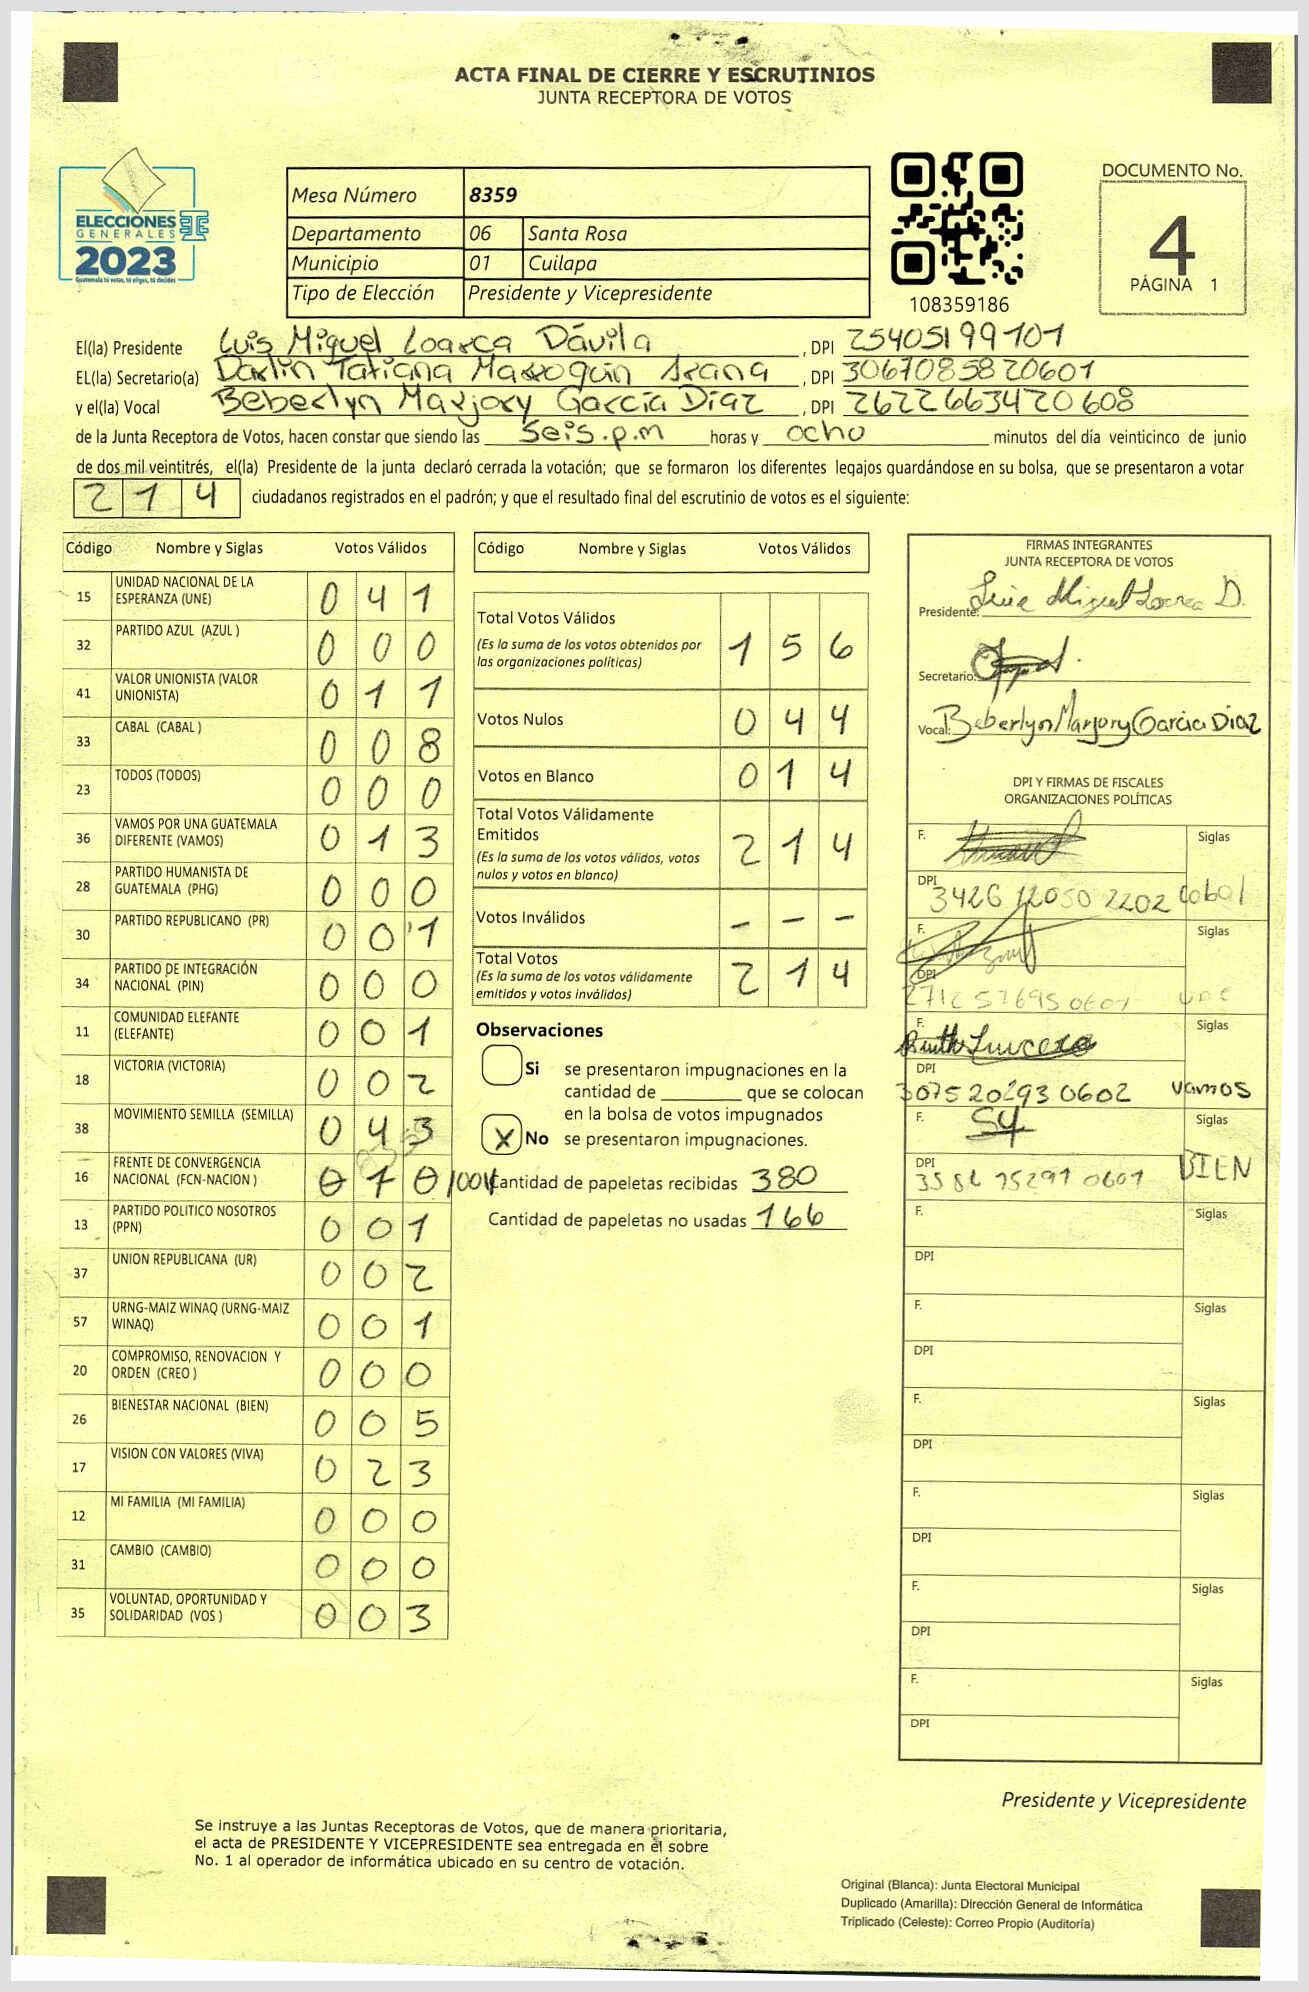 ACTA FINAL DE CIERRE Y ESCRUTINIOS
JUNTA RECEPTORA DE VOTOS
ELECCIONES
GENERALES
2023
Guatemala tú votas, tú eliges, tú decides
TSE
Mesa Número 8359
Departamento 06 Santa Rosa
Municipio 01 Cuilapa
Tipo de Elección Presidente y Vicepresidente
108359186
DOCUMENTO No.
4
PÁGINA 1
El(la) Presidente Luis Miguel Loarca Dávila , DPI 25405199101
EL(la) Secretario(a) Darlin Tatiana Marroquín Arana , DPI 3067085820601
y el(la) Vocal Beberlyn Marjory García Díaz , DPI 2622663420608
de la Junta Receptora de Votos, hacen constar que siendo las seis.p.m horas y ocho minutos del día veinticinco de junio
de dos mil veintitrés, el(la) Presidente de la junta declaró cerrada la votación; que se formaron los diferentes legajos guardándose en su bolsa, que se presentaron a votar
214 ciudadanos registrados en el padrón; y que el resultado final del escrutinio de votos es el siguiente:
Código Nombre y Siglas Votos Válidos
15 UNIDAD NACIONAL DE LA ESPERANZA (UNE) 0 4 1
32 PARTIDO AZUL (AZUL ) 0 0 0
41 VALOR UNIONISTA (VALOR UNIONISTA) 0 1 1
33 CABAL (CABAL ) 0 0 8
23 TODOS (TODOS) 0 0 0
36 VAMOS POR UNA GUATEMALA DIFERENTE (VAMOS) 0 1 3
28 PARTIDO HUMANISTA DE GUATEMALA (PHG) 0 0 0
30 PARTIDO REPUBLICANO (PR) 0 0 1
34 PARTIDO DE INTEGRACIÓN NACIONAL (PIN) 0 0 0
11 COMUNIDAD ELEFANTE (ELEFANTE) 0 0 1
18 VICTORIA (VICTORIA) 0 0 2
38 MOVIMIENTO SEMILLA (SEMILLA) 0 4 3
16 FRENTE DE CONVERGENCIA NACIONAL (FCN-NACION ) 0 1 0 /001/
13 PARTIDO POLITICO NOSOTROS (PPN) 0 0 1
37 UNION REPUBLICANA (UR) 0 0 2
57 URNG-MAIZ WINAQ (URNG-MAIZ WINAQ) 0 0 1
20 COMPROMISO, RENOVACION Y ORDEN (CREO ) 0 0 0
26 BIENESTAR NACIONAL (BIEN) 0 0 5
17 VISION CON VALORES (VIVA) 0 2 3
12 MI FAMILIA (MI FAMILIA) 0 0 0
31 CAMBIO (CAMBIO) 0 0 0
35 VOLUNTAD, OPORTUNIDAD Y SOLIDARIDAD (VOS ) 0 0 3
Código Nombre y Siglas Votos Válidos
Total Votos Válidos 1 5 6
(Es la suma de los votos obtenidos por
las organizaciones políticas)
Votos Nulos 0 4 4
Votos en Blanco 0 1 4
Total Votos Válidamente
Emitidos 2 1 4
(Es la suma de los votos válidos, votos
nulos y votos en blanco)
Votos Inválidos - - -
Total Votos 2 1 4
(Es la suma de los votos válidamente
emitidos y votos inválidos)
Observaciones
Si se presentaron impugnaciones en la
cantidad de ________ que se colocan
en la bolsa de votos impugnados
X No se presentaron impugnaciones.
Cantidad de papeletas recibidas 380
Cantidad de papeletas no usadas 166
FIRMAS INTEGRANTES
JUNTA RECEPTORA DE VOTOS
Presidente: Luis Miguel Loarca D.
Secretario:
Vocal: Beberlyn Marjory García Díaz
DPI Y FIRMAS DE FISCALES
ORGANIZACIONES POLÍTICAS
F. Siglas
DPI 3426 12050 2202 Cabal
F. Siglas
DPI 2712 57695 0601 une
F. Ruth Lucero Siglas
DPI 3075 20293 0602 vamos
F. Siglas
DPI BIEN
F. Siglas
DPI
F. Siglas
DPI
F. Siglas
DPI
F. Siglas
DPI
F. Siglas
DPI
F. Siglas
DPI
Presidente y Vicepresidente
Se instruye a las Juntas Receptoras de Votos, que de manera prioritaria,
el acta de PRESIDENTE Y VICEPRESIDENTE sea entregada en el sobre
No. 1 al operador de informática ubicado en su centro de votación.
Original (Blanca): Junta Electoral Municipal
Duplicado (Amarilla): Dirección General de Informática
Triplicado (Celeste): Correo Propio (Auditoría)